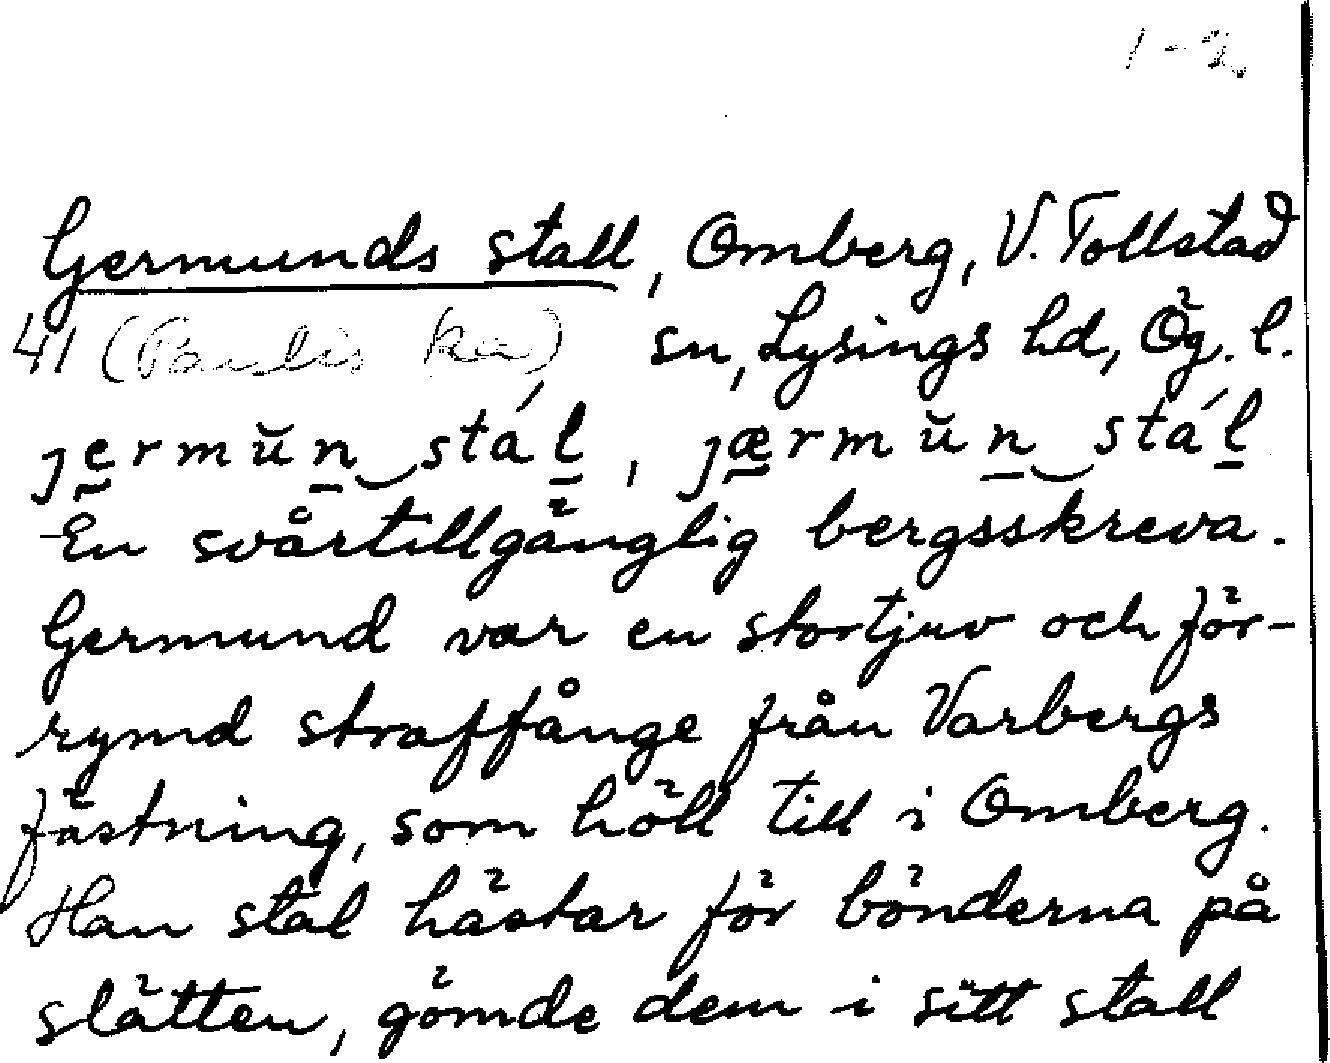 1-2
Germunds stall, Omberg, V. Tollstad
41 (Paulis ka) sn, Lysings hd, Ög. l.
jermŭn stál, jærmŭn stál
En svårtillgänglig bergsskreva.
Germund var en stortjuv och för-
rymd straffånge från Varbergs
fästning, som höll till i Omberg.
Han stal hästar för bönderna på
slätten, gömde dem i sitt stall